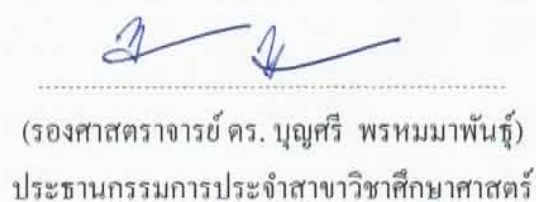 (รองศาสตราจารย์ ดร. บุญศรี พรหมมาพันธุ์)
ประธานกรรมการประจำสาขาวิชาศึกษาศาสตร์